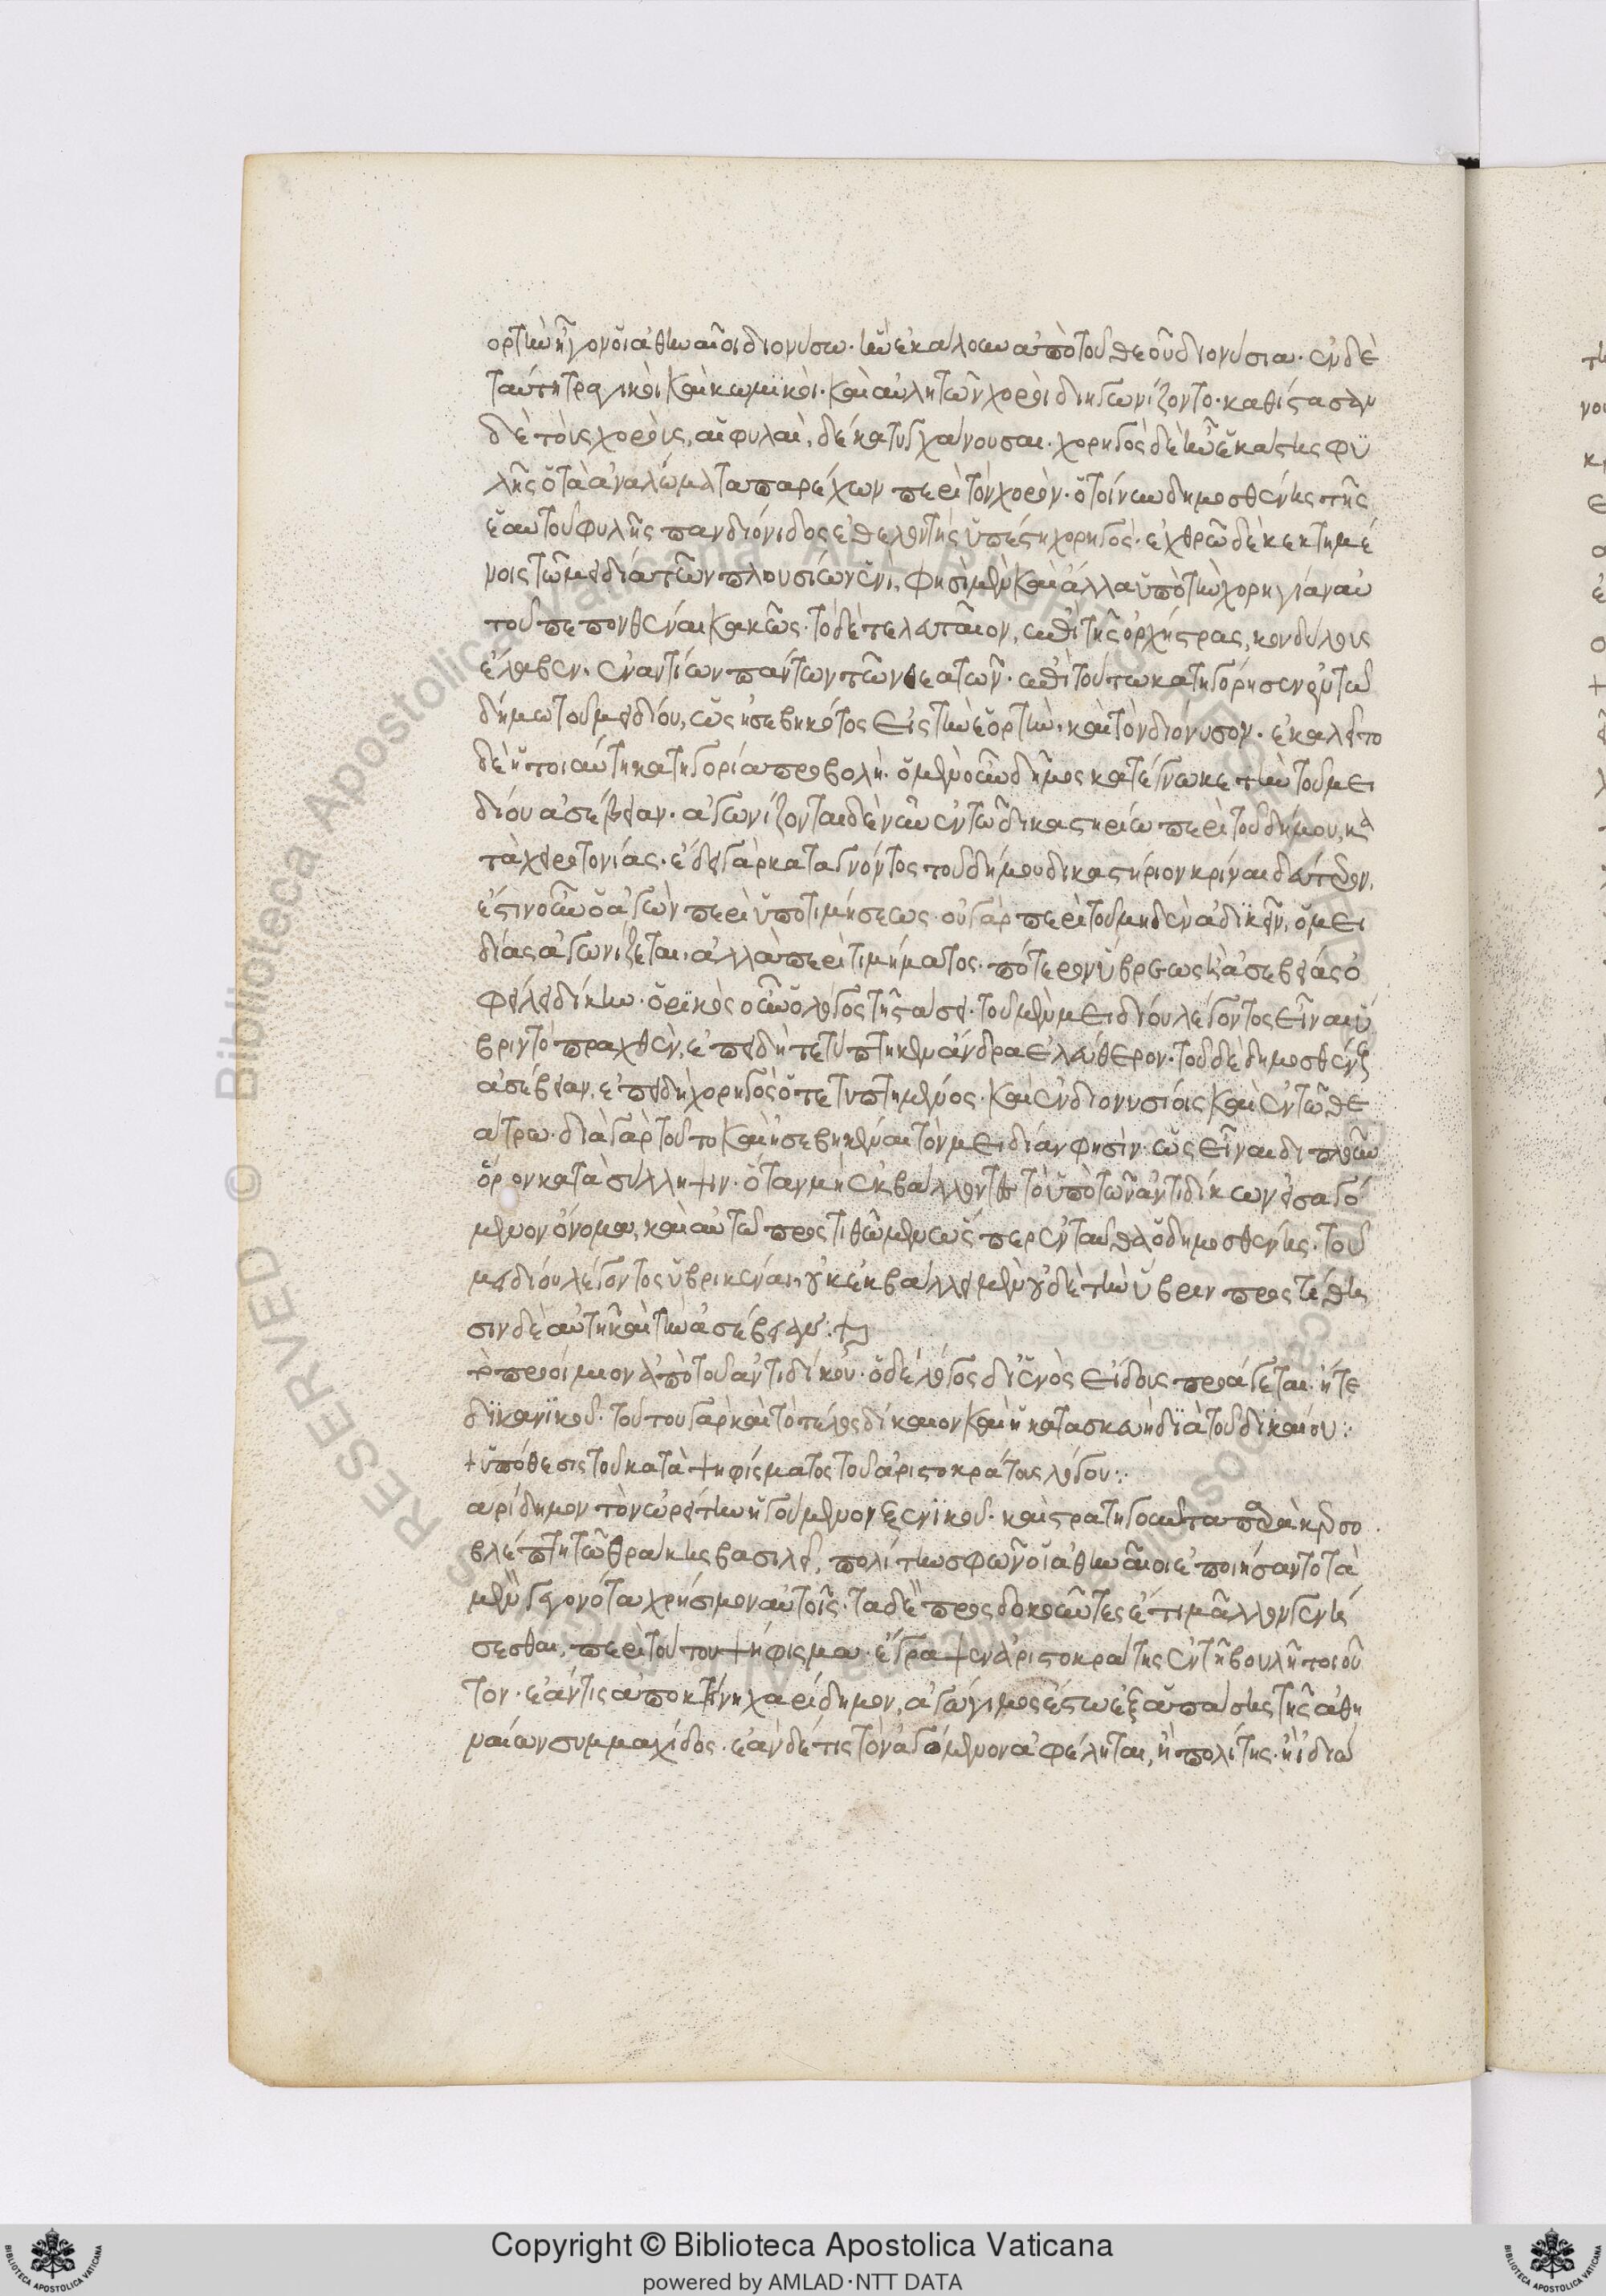 ορτὴν ἦγον οἱ ἀθηναῖοι διονύσω· ἣν ἐκάλουν ἀπὸ τοῦ θεοῦ διονύσια· ἐν δὲ
ταύτη τραγικοὶ καὶ κωμικοὶ· καὶ αὐλητῶν χοροὶ διηγωνίζοντο· καθίστασαν
δὲ τοὺς χοροὺς, αἱ φυλαὶ, δέκα τυγχάνουσαι· χορηγὸς δὲ ἦν ἑκάστης φυ
λῆς ὁ τὰ ἀναλώματα παρέχων περὶ τὸν χορόν· ὁ τοίνυν δημοσθένης τῆς
ἑαυτοῦ φυλῆς πανδιόνιδος ἐθελοντὴς ὑπέστη χορηγός· ἐχθρῶ δὲ κεκτημέ
νος τῶ μειδία τῶν πλουσίων ἑνὶ, φησὶ μὲν καὶ ἄλλα ὑπὸ τὴν χορηγίαν αὐ
τοῦ πεπονθέναι κακῶς· τὸ δὲ τελευταῖον, ἐπὶ τῆς ὀρχήστρας, κονδύλους
ἔλαβεν, ἐναντίων πάντων τῶν θεατῶν· ἐπὶ τούτω κατηγόρησεν ἐν τῶ
δήμω τοῦ μειδίου, ὡς ἠσεβηκότος εἰς τὴν ἑορτὴν· καὶ τὸν διόνυσον· ἐκαλεῖτο
δὲ ἡ τοιαύτη κατηγορία προβολή· ὁ μὲν οὖν δῆμος κατέγνωκε τὴν τοῦ μει
δίου ἀσέβειαν· ἀγωνίζονται δὲ νῦν ἐν τῶ δικαστηρίω περὶ τοῦ δήμου, κα
τὰ χειροτονίας· ἔδει γὰρ καταγνόντος τοῦ δήμου δικαστήριον κρῖναι δεύτερον,
ἔστιν οὖν ὁ ἀγὼν περὶ ὑποτιμήσεως· οὐ γὰρ περὶ τοῦ μηδὲν ἀδικεῖν, ὁ μει
δίας ἀγωνίζεται· ἀλλὰ περὶ τιμήματος· πότερον ὕβρεως ἢ ἀσεβείας ὀ
φείλει δίκην· ὁρικὸς οὖν ὁ λόγος τῆ στάσει· τοῦ μὲν μειδίου λέγοντος εἶναι ὕ
βριν τὸ πραχθὲν, ἐπειδὴ τετύπτηκεν ἄνδρα ἐλεύθερον· τοῦ δὲ δημοσθένους
ἀσέβειαν, ἐπειδὴ χορηγὸς ὁ τετυπτημένος· καὶ ἐν διονυσίοις καὶ ἐν τῶ θε
άτρω· διὰ γὰρ τοῦτο καὶ ἠσεβηκέναι τὸν μειδίαν φησὶν· ὡς εἶναι διπλοῦν
ὅρον κατὰ σύλληψιν· ὅταν μὴ ἐκβάλλοντες τὸ ὑπὸ τῶν ἀντιδίκων εἰσαγό
μενον ὄνομα, καὶ αὐτῶ προστιθῶμεν ὥσπερ ἐνταῦθα ὁ δημοσθένης· τοῦ
μειδίου λέγοντος ὑβρικέναι, οὐκ ἐκβάλλει μὲν οὐδὲ τὴν ὕβριν προστίθη
σιν δὲ αὐτῆ καὶ τὴν ἀσέβειαν:
τὸ προοίμιον ἀπὸ τοῦ ἀντιδίκου· ὁ δὲ λόγος δι' ἑνὸς εἴδους προάγεται· ἤτε
δικανικοῦ· τούτου γὰρ καὶ τὸ τέλος δίκαιον καὶ ἡ κατασκευὴ διὰ τοῦ δικαίου:
+ ὑπόθεσις τοῦ κατὰ ψηφίσματος τοῦ ἀριστοκράτους λόγου:
χαρίδημον τὸν ὠρείτην ἡγούμενον ξενικοῦ· καὶ στρατηγοῦντα παρὰ κερσο
βλέπτη τῶ θράκης βασιλεῖ, πολίτην σφῶν οἱ ἀθηναῖοι ἐποιήσαντο τὰ
μὲν γεγονότα χρήσιμον αὐτοῖς· τὰ δὲ προσδοκοῦντες ἔτι μᾶλλον γενή
σεσθαι, περὶ τούτου ψήφισμα· ἔγραψεν ἀριστοκράτης ἐν τῆ βουλῆ τοιοῦ
τον· ἐάν τις ἀποκτείνη χαρίδημον, ἀγώγιμος ἔστω ἐξ ἁπάσης τῆς ἀθη
ναίων συμμαχίδος· ἐὰν δέ τις τὸν ἀγόμενον ἀφέληται, ἢ πολίτης· ἢ ἰδιώ
© Biblioteca Apostolica Vaticana ALL RIGHTS RESERVED
Copyright © Biblioteca Apostolica Vaticana
powered by AMLAD·NTT DATA